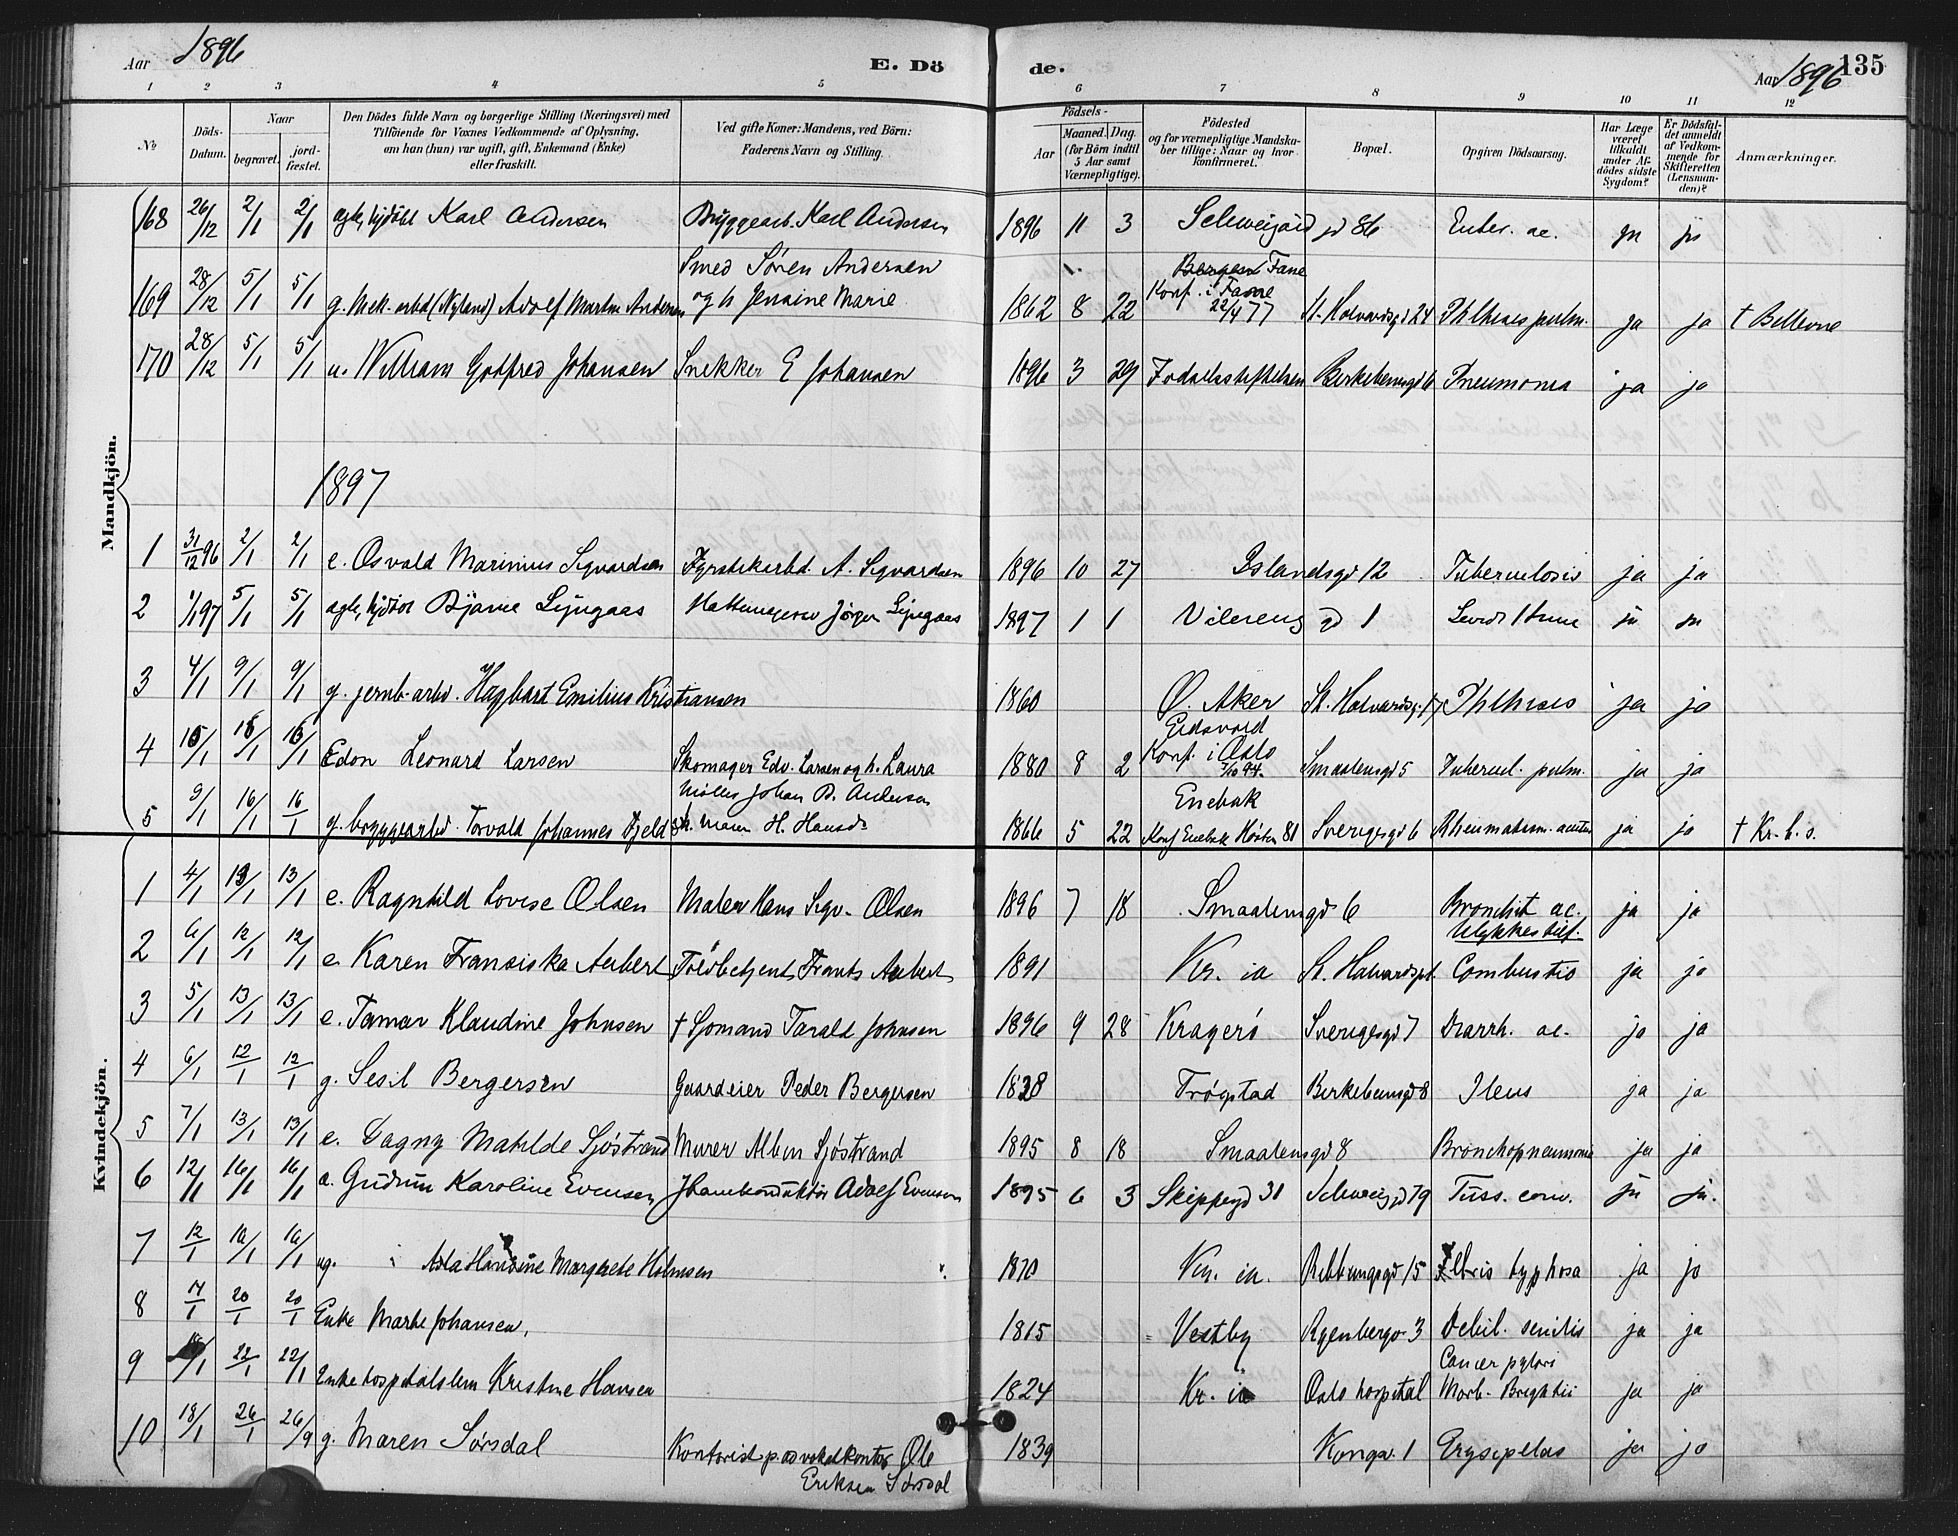 Aar 1896
E. Dö
de.
Aar 1896
135
1 2 3 4 5 6 7 8 9 10 11 12
No
Döds-
Datum.
Naar
begravet.
jord-
fæstet.
Den Dödes fulde Navn og borgerlige Stilling (Næringsvei) med
Tilföiende for Voxnes Vedkommende af Oplysning,
om han (hun) var ugift, gift, Enkemand (Enke)
eller fraskilt.
Ved gifte Koner: Mandens, ved Börn:
Faderens Navn og Stilling.
Födsels-
Aar
Maaned. Dag.
(for Börn indtil
5 Aar samt
Værnepligtige).
Födested
og for værnepligtige Mandska-
ber tillige: Naar og hvor
konfirmeret.
Bopæl.
Opgiven Dödsaarsag.
Har Læge
været
tilkaldt
under Af-
dödes sidste
Sygdom?
Er Dödsfal-
det anmeldt
af Vedkom-
mende for
Skifteretten
(Lensman-
den)?
Anmærkninger.
Mandkjön.
168 26/12 2/1 2/1 Karl Andersen Byggearb. Karl Andersen 1896 11 3 Schweigård gd 86 Enter. ac. ja ja
Smed Søren Andersen Bergen Fane
169 28/12 5/1 5/1 g. Mek. arbd (Nyland) Adolf Martin Andersen og h Jensine Marie 1862 8 22 Konf. i Fane 22/4 77 St. Halvardsgd 24 Phthisis pulm. ja ja † Bellevue
170 28/12 5/1 5/1 u. William Godfred Johansen Snekker E Johansen 1896 3 29 Fødselsstiftelsen Birkebeinsgd 6 Pneumonia ja ja
1897
1 31/12 96 2/1 2/1 e. Osvald Marinius Sigvardsen Fyrstikarbd. A. Sigvardsen 1896 10 27 Islandsgd 12 Tuberculosis ja ja
2 1/1 97 5/1 5/1 Bjarne Ljugaas Jørgen Ljugaas 1897 1 1 Vålereng gd 1 ja ja
3 4/1 9/1 9/1 g. jernb-arbd. Hagbart Emilius Kristiansen 1860 Ø. Aker St. Halvardsg. 17 Phthisis ja ja
Eidsvold
4 10/1 15/1 16/1 Edon Leonard Larsen Skomager Edv. Larsen og h. Laura 1880 8 2 Konf. i Oslo 7/10 94. Smaalensgd 5 Tubercul. pulm. ja ja
Møller Johan B. Andersen Enebak
5 9/1 16/1 16/1 g. byggearbd. Torvald Johannes Fjeld h. Maren H. Hansd. 1866 5 22 Konf Enebak Høsten 81 Sverigesgd 6 Rheumatism. acutus ja ja † Kr. b. s.
Kvindekjön.
1 4/1 13/1 13/1 e. Ragnhild Lovise Olsen Maler Hans Sigv. Olsen 1896 7 18 Smaalensgd 6 Bronchit ac. ja ja
Ulykkestilf.
2 6/1 12/1 12/1 e Karen Fransiska Aubert Toldbetjent Frants Aubert 1891 Kr. ia St. Halvardspl. Combustio ja ja
3 5/1 13/1 13/1 e. Tamar Klaudine Johnsen † Sjomand Tarald Johnsen 1896 9 28 Kragerö Sverigesgd 7 Diarrh. ac. ja ja
4 6/1 12/1 12/1 g. Sesil Bergersen Gaardeier Peder Bergersen 1828 Trøgstad Birkebeinsgd 8 Ileus ja ja
5 7/1 13/1 13/1 e. Dagny Matilde Sjöstrand Murer Albin Sjöstrand 1895 8 18 Smaalensgd 8 Bronchopneumonie ja ja
6 12/1 16/1 16/1 e. Gudrun Karoline Evensen Adolf Evensen 1895 6 3 Skippergd 31 Schweigsgd 79 Tuss. conv. ja ja.
7 12/1 16/1 16/1 ug. Asta Margrete Holmsen 1870 Kr. ia. Rubbungsgd 15 Febris typhosa ja ja
8 17/1 20/1 20/1 Enke Marte Johansen. 1815 Vestby Ryenbergv. 3 Debil. senilis ja ja
Cancer pylori
9 18/1 22/1 22/1 Enke hospitalslem Kristine Hansen 1824 Kr. ia Oslo hospital Morb. Brightii ja ja
10 18/1 26/1 26/9 g. Maren Sörsdal Kontorist p. advokatkontor Ole 1839 Kongsv. 1 Erysipelas ja ja
Eriksen Sörsdal